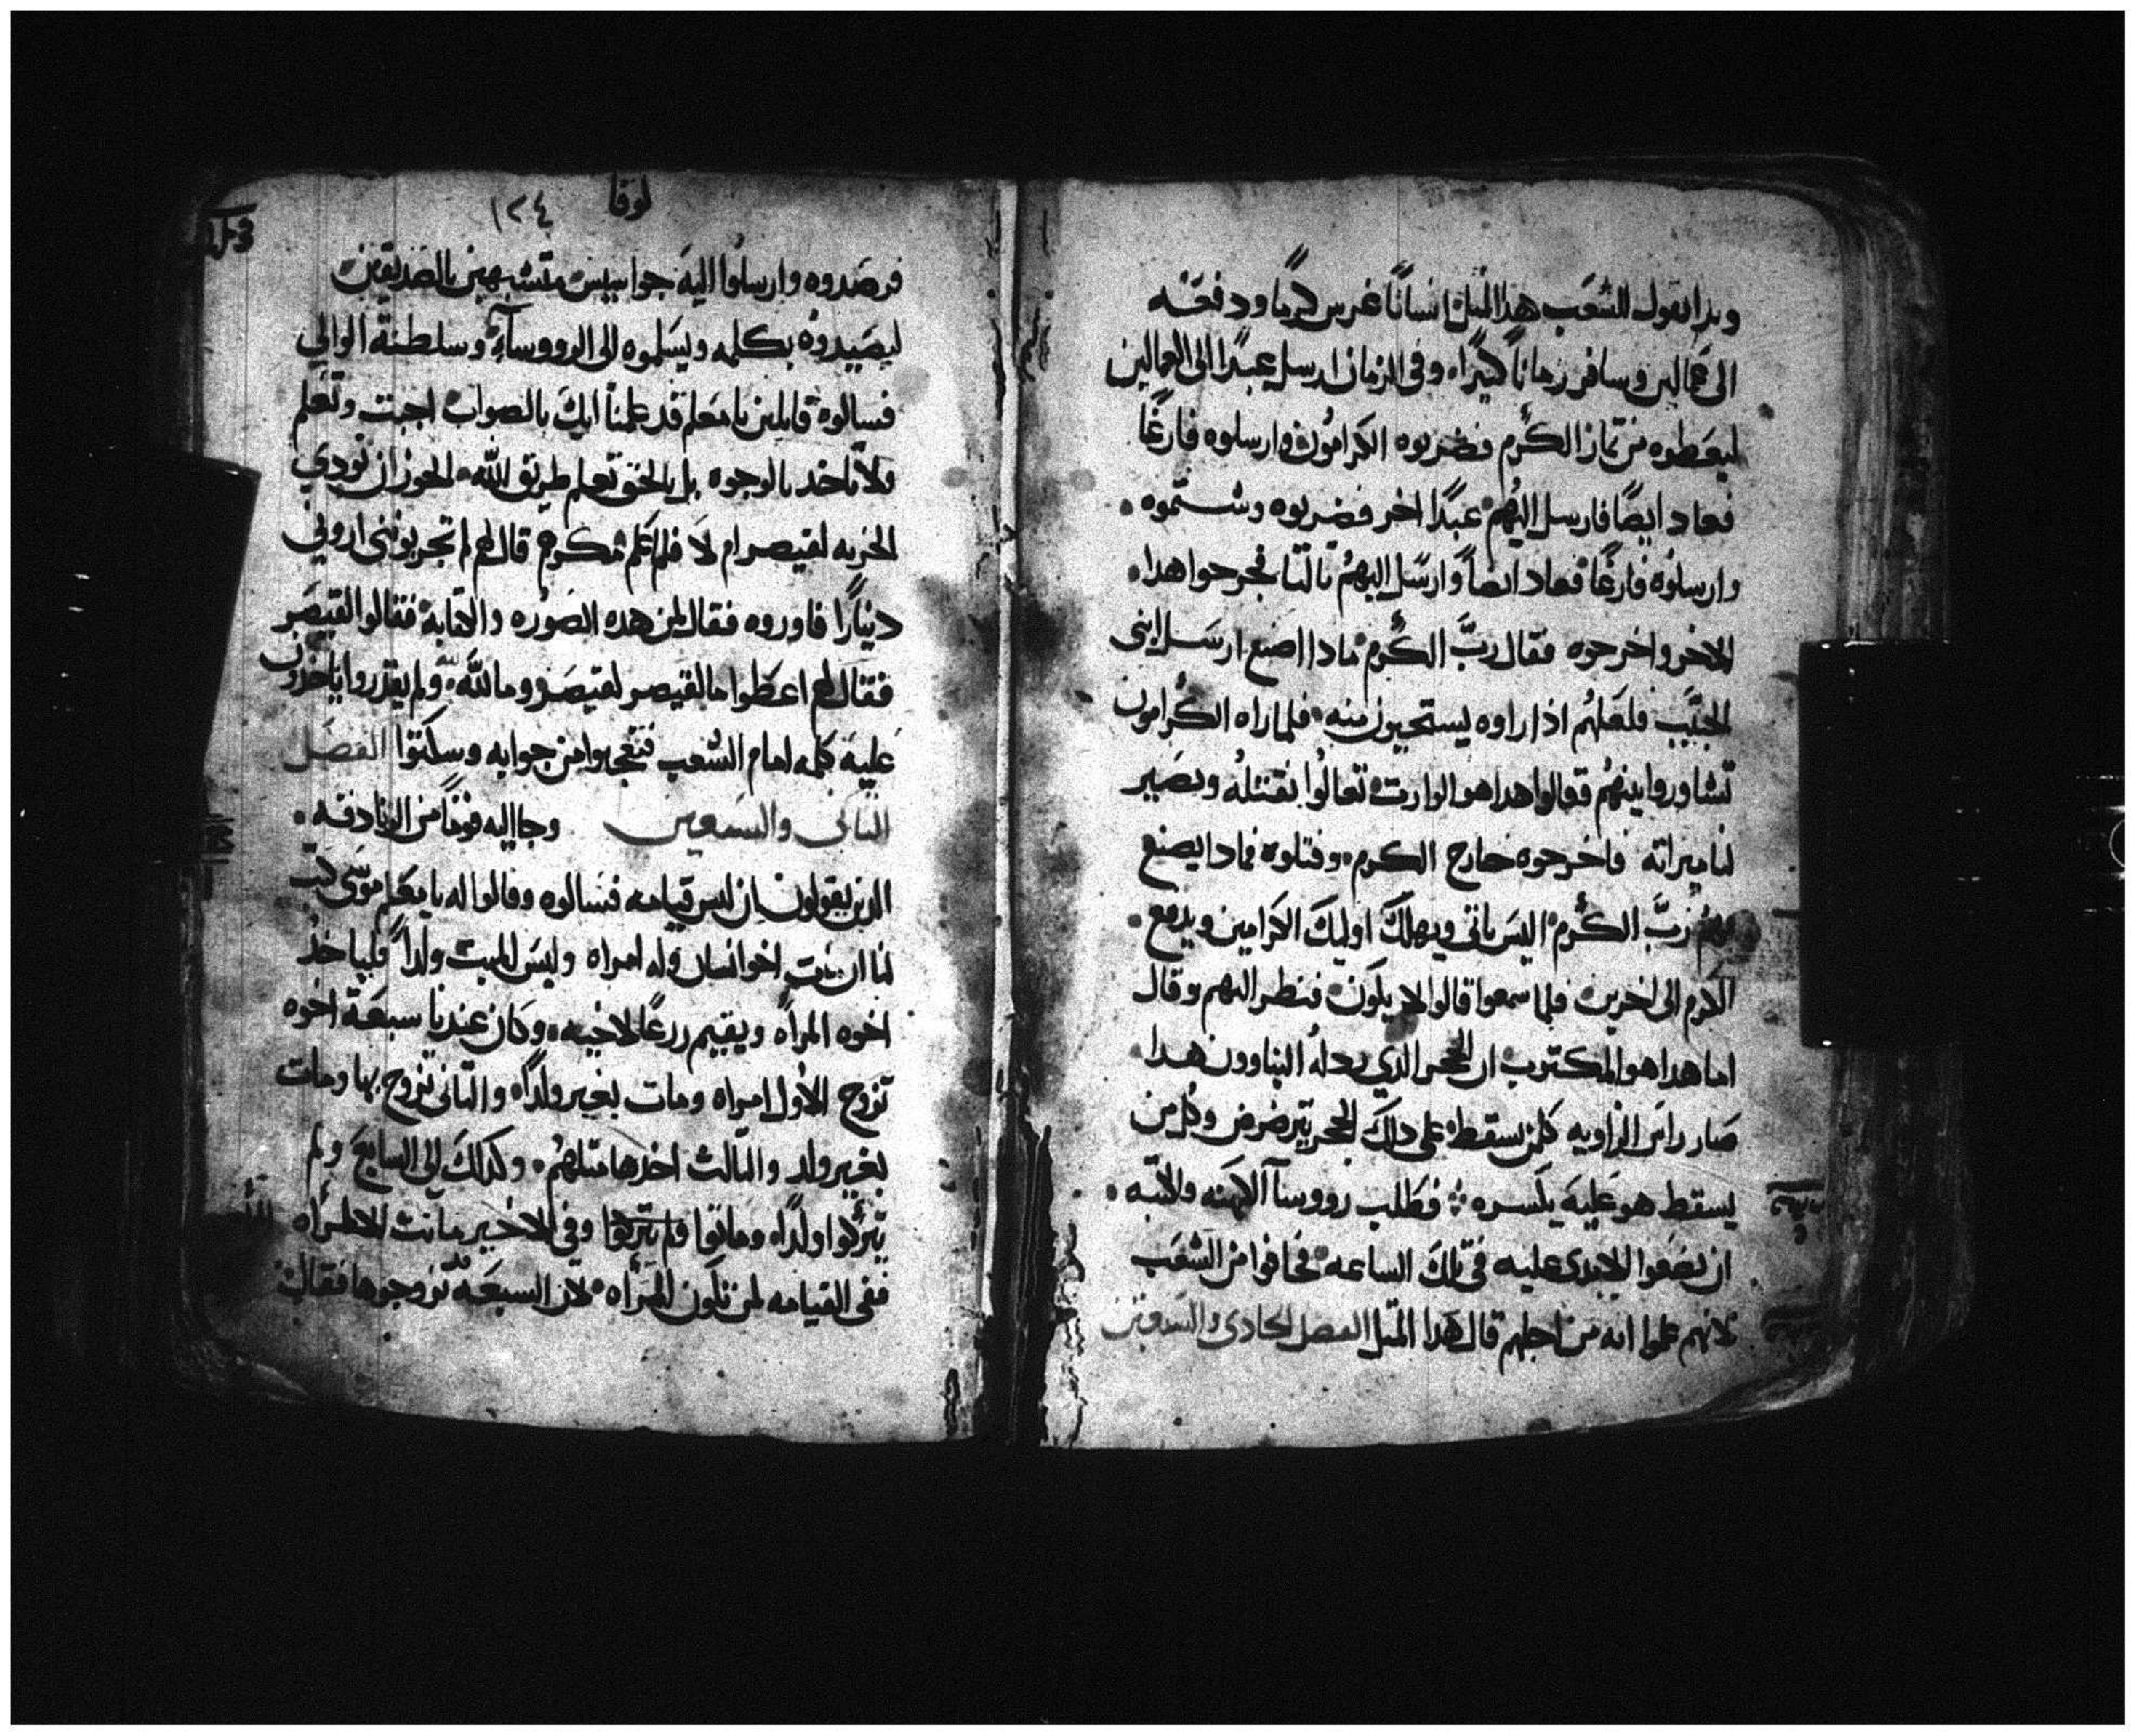 وبدا يقول للشعب هذا المثل انسانًا غرس كرمًا ودفعه
الى عمالين وسافر زمانًا كثيرًا، وفى الزمان ارسل عبدًا الى العمالين
ليعطوه من ثمار الكرم فضربوه الكرامون وارسلوه فارغًا
فعاد ايضًا فارسل اليهم عبدًا اخر فضربوه وشتموه.
وارسلوه فارغًا فعاد ايضاً وارسل اليهم ثالثا فجرحوا هدا
الاخر واخرجوه فقال ربَّ الكرم مادا اصنع ارسل ابنى
الحبيب فلعلهم اذا راوه يستحيون منه فلما راه الكرامون
تشاوروا بينهم فقالوا هدا هو الوارث تعالوا نقتله ويصير
لنا ميراثه فاخرجوه خارج الكرم وقتلوه فمادا يصنع
ربَّ الكرم اليس ياتى ويهلك اوليك الكرامين ويدفع.
الكرم الى اخرين فلما سمعوا قالوا لا يكون فنظر اليهم وقال
اما هدا هو المكتوب ان الحجر الدي ردله البناوون هدا
صار راس الزاويه كلمن يسقط على دلك الحجر يترضرض وكل من
يسقط هو عليه يكسره فطلب رووسآ الكهنه والكتبه.
ان يضعوا الايدى عليه فى تلك الساعه فخافوا من الشعب
لانهم علموا انه من اجلهم قال هدا المثل الفصل الحادى والسبعين
لوقا
١٢٤
فرصدوه وارسلوا اليه جواسيس متشبهين بالصديقين
ليصيدوه بكلمه ويسلموه الى الرووسآء وسلطنة الوالي
فسالوه قايلين يا معلم قد علمنا انك بالصواب اجبت وتعلم
ولا تاخد بالوجوه بل بالحق تعلم طريق الله الجوز ان نودي
الجزيه لقيصر ام لا فلما علم مكرهم قال لهم لم تجربونني اروني
دينارًا فاوروه فقال لمن هده الصوره والكتابة فقالوا لقيصر
فقال لهم اعطوا ما لقيصر لقيصر وما لله لله ولم يقدروا ياخدون
عليه كلمه امام الشعب فتعجبوا من جوابه وسكتوا الفصل
الثانى والسبعين وجا اليه قومًا من الزنادقه.
الدين يقولون ان ليس قيامه فسالوه وقالوا له يا معلم موسى كتب
لنا ان مات اخو انسان وله امراه وليس للميت ولداً فلياخد
اخوه المرأه ويقيم زرعًا لاخيه وكان عندنا سبعة اخوه
تزوج الاول امراه ومات بغير ولدًا والثانى تزوج بها ومات
بغير ولد والثالث اخدها مثلهم وكدلك الى السابع ولم
يتركوا ولدًا وماتوا وفى الاخير ماتت الامراه
ففى القيامه لمن تكون المرأه لان السبعه تزوجوها فقال